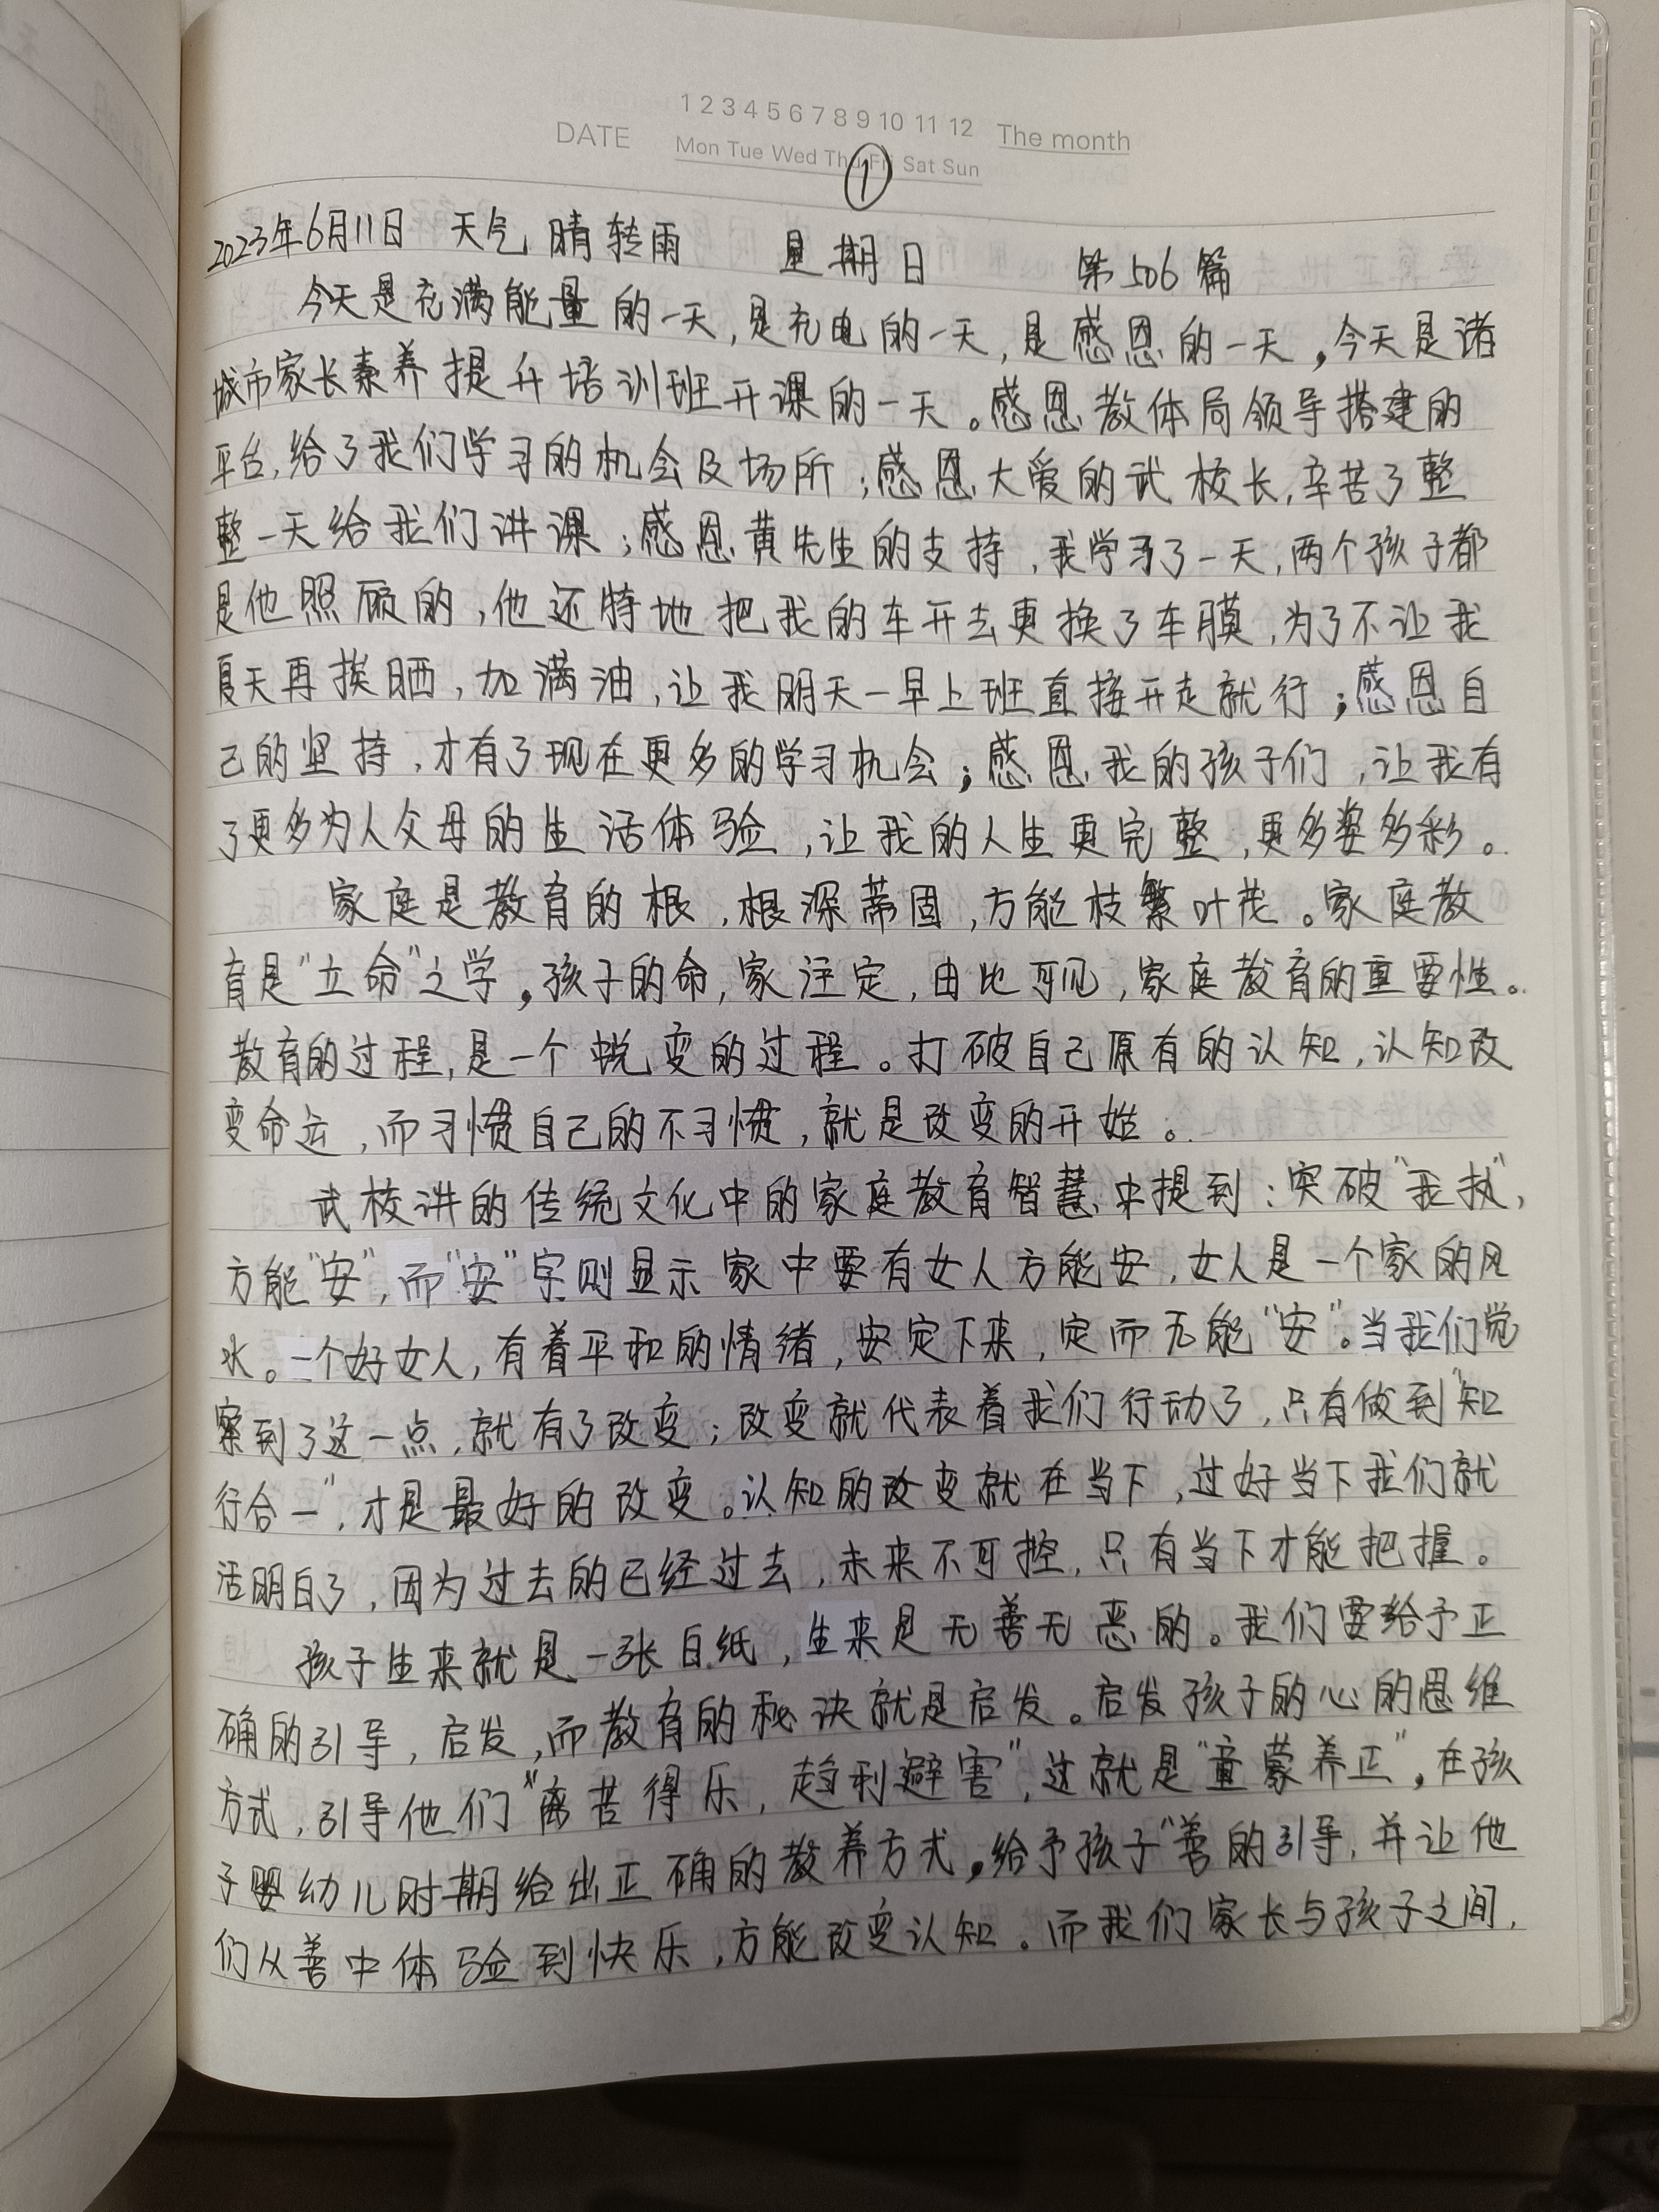 1 2 3 4 5 6 7 8 9 10 11 12
DATE Mon Tue Wed Thu Fri Sat Sun The month
①
2023年6月11日 天气 晴转雨 星期日 第506篇
今天是充满能量的一天,是充电的一天,是感恩的一天,今天是诸
城市家长素养提升培训班开课的一天。感恩教体局领导搭建的
平台,给了我们学习的机会及场所;感恩大爱的武校长,辛苦了整
整一天给我们讲课;感恩黄先生的支持,我学习了一天,两个孩子都
是他照顾的,他还特地把我的车开去更换了车膜,为了不让我
夏天再挨晒,加满油,让我明天一早上班直接开走就行;感恩自
己的坚持,才有了现在更多的学习机会;感恩我的孩子们,让我有
了更多为人父母的生活体验,让我的人生更完整,更多姿多彩。
家庭是教育的根,根深蒂固,方能枝繁叶茂。家庭教
育是“立命”之学。孩子的命,家注定,由此可见,家庭教育的重要性。
教育的过程,是一个蜕变的过程。打破自己原有的认知,认知改
变命运,而习惯自己的不习惯,就是改变的开始。
武校讲的传统文化中的家庭教育智慧中提到:突破“我执”,
方能“安”,而“安”字则显示家中要有女人方能安,女人是一个家的风
水。一个好女人,有着平和的情绪,安定下来,定而无能“安”。当我们觉
察到了这一点,就有了改变;改变就代表着我们行动了,只有做到“知
行合一”,才是最好的改变。认知的改变就在当下,过好当下我们就
活明白了,因为过去的已经过去,未来不可控,只有当下才能把握。
孩子生来就是一张白纸,生来是无善无恶的。我们要给予正
确的引导,启发,而教育的秘诀就是启发。启发孩子的心的思维
方式,引导他们“离苦得乐,趋利避害”,这就是“童蒙养正”,在孩
子婴幼儿时期给出正确的教养方式,给予孩子“善的引导,并让他
们从善中体验到快乐,方能改变认知。而我们家长与孩子之间,